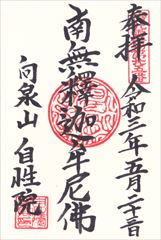 奉拝
令和二年五月二十三日
南無釋迦牟尼佛
向泉山 自性院